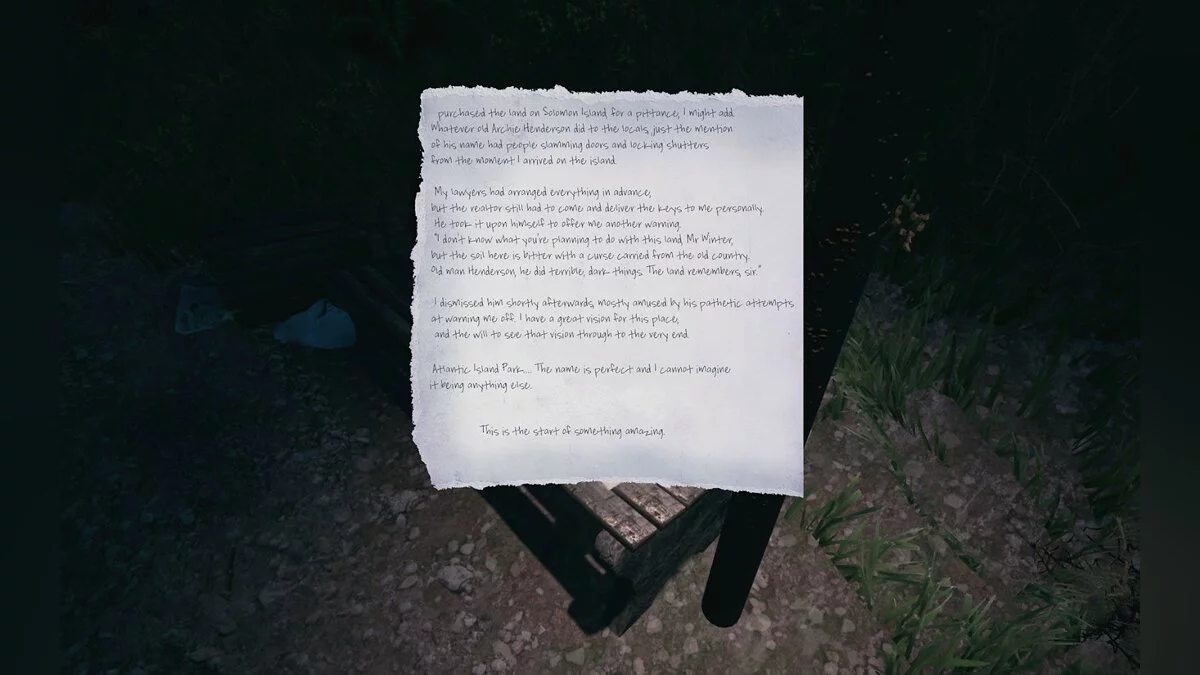 purchased the land on Solomon Island, for a pittance, I might add.
Whatever old Archie Henderson did to the locals, just the mention
of his name had people slamming doors and locking shutters
from the moment I arrived on the island.
My lawyers had arranged everything in advance,
but the realtor still had to come and deliver the keys to me personally.
He took it upon himself to offer me another warning.
"I don't know what you're planning to do with this land, Mr Winter,
but the soil here is bitter with a curse carried from the old country.
Old man Henderson, he did terrible, dark things. The land remembers, sir."
I dismissed him shortly afterwards, mostly amused by his pathetic attempts
at warning me off. I have a great vision for this place,
and the will to see that vision through to the very end.
Atlantic Island Park... The name is perfect and I cannot imagine
it being anything else.
This is the start of something amazing.